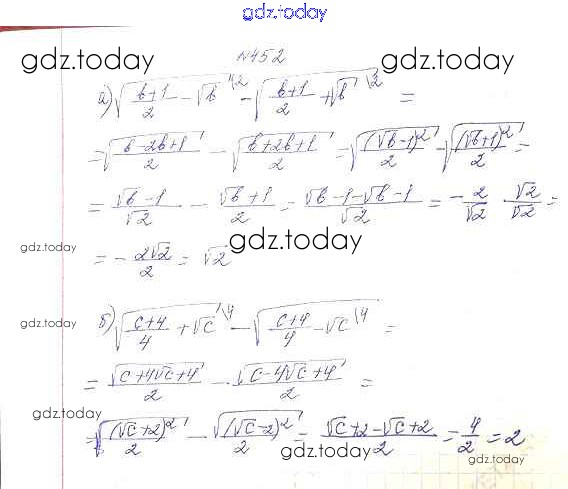 gdz.today
N452
gdz.today gdz.today
а) √((b+1)/2 − √b \2) − √((b+1)/2 + √b \2) =
= √((b−2b+1)/2) − √((b+2b+1)/2) = √((√b−1)²/2) − √((√b+1)²/2) =
= (√b−1)/√2 − (√b+1)/2 = (√b−1−√b−1)/√2 = −2/√2 · √2/√2 =
gdz.today gdz.today
= −2√2/2 = √2
gdz.today gdz.today
б) √((c+4)/4 + √c \4) − √((c+4)/4 − √c \4) =
= √(c+4√c+4)/2 − √(c−4√c+4)/2 =
gdz.today gdz.today
= √((√c+2)²)/2 − √((√c−2)²)/2 = (√c+2−√c+2)/2 = 4/2 = 2
gdz.today gdz.today